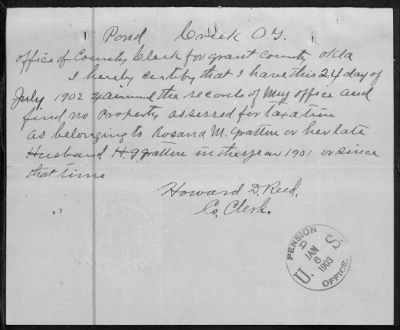 Pond Creek O.T.
office of County Clerk for grant county okla
I hereby certify that I have this 24 day of
July 1902 examined the records of my office and
find no Property assessed for Taxation
as belonging to Rosana M. Gratten or her late
Husband H. G Gratten in the year 1901 or since
that time
Howard D. Reed.
Co. Clerk.
PENSION
D
JAN
6
1903
U. S.
OFFICE.